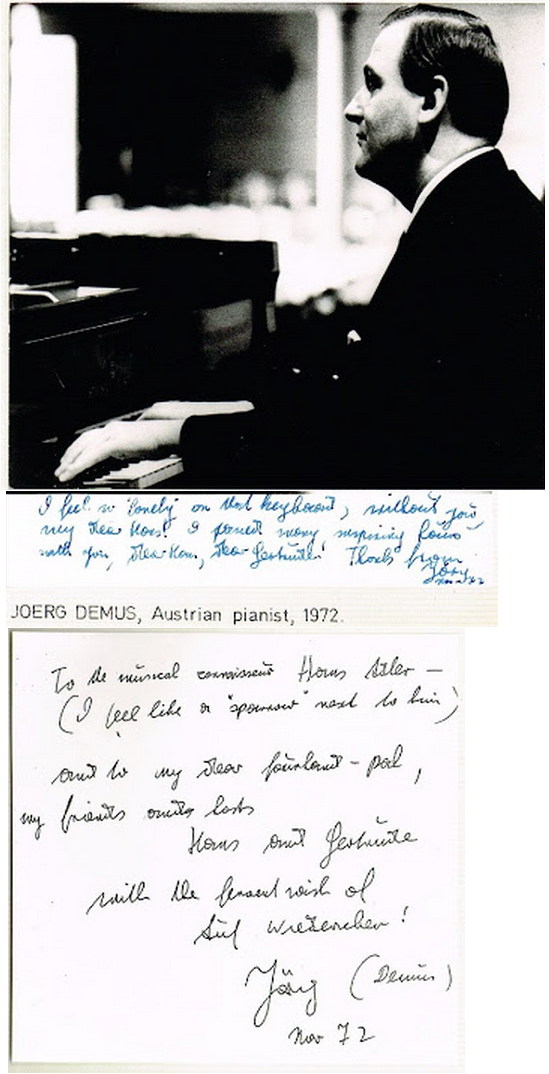 I feel so "lonely" on that keyboard, without you
my dear Hans! I passed many inspiring hours
with you, dear Hans, dear Gertrude! Thanks from
Jörg
JOERG DEMUS, Austrian pianist, 1972.
To the musical connoisseur Hans Adler —
(I feel like a "sparrow" next to him)
and to my dear fourhand - pal,
my friends and hosts
Hans and Gertrude
with the fervent wish of
Auf Wiedersehen!
Jörg (Demus)
Nov 72